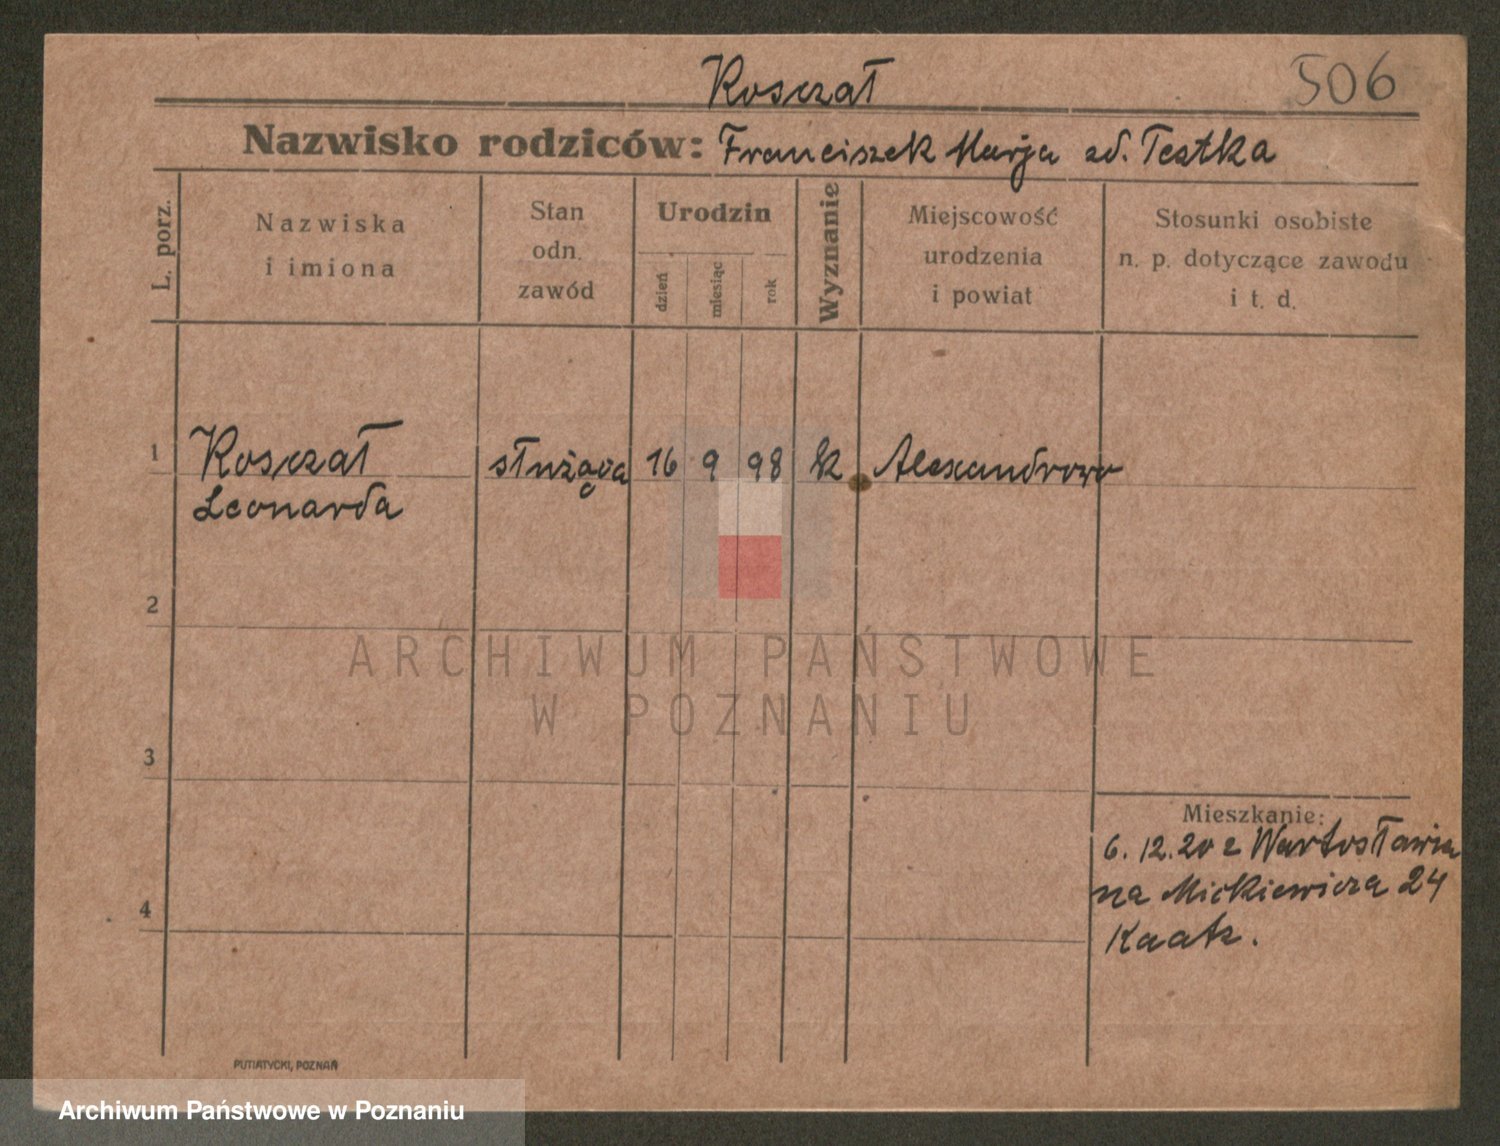 Rosczał
506
Nazwisko rodziców: Franciszek Marja zd. Testka
L. porz.
Nazwiska
i imiona
Stan
odn.
zawód
Urodzin
dzień
miesiąc
rok
Wyznanie
Miejscowość
urodzenia
i powiat
Stosunki osobiste
n. p. dotyczące zawodu
i t. d.
1
Rosczał
Leonarda
służąca
16
9
98
k
Alexandrowo
2
ARCHIWUM PAŃSTWOWE
W POZNANIU
3
Mieszkanie:
6. 12. 20 z Wartosławia
na Mickiewicza 24
Kaatz.
4
PUTIATYCKI, POZNAŃ
Archiwum Państwowe w Poznaniu